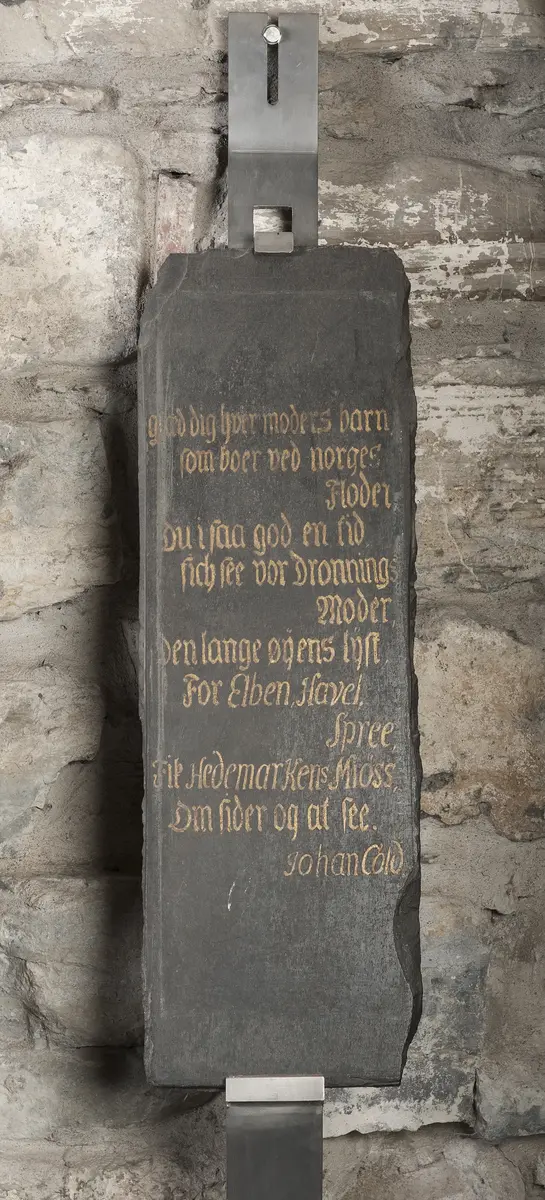 glæd dig hver moders barn
som boer ved norges
Floder
Du i saa god en tid
fich see vor Dronnings
Moder,
Den lange øÿens lÿst
For Elben, Havel,
Spree,
Fik Hedemarkens Miøss,
Om sider og at see.
Johan Cold